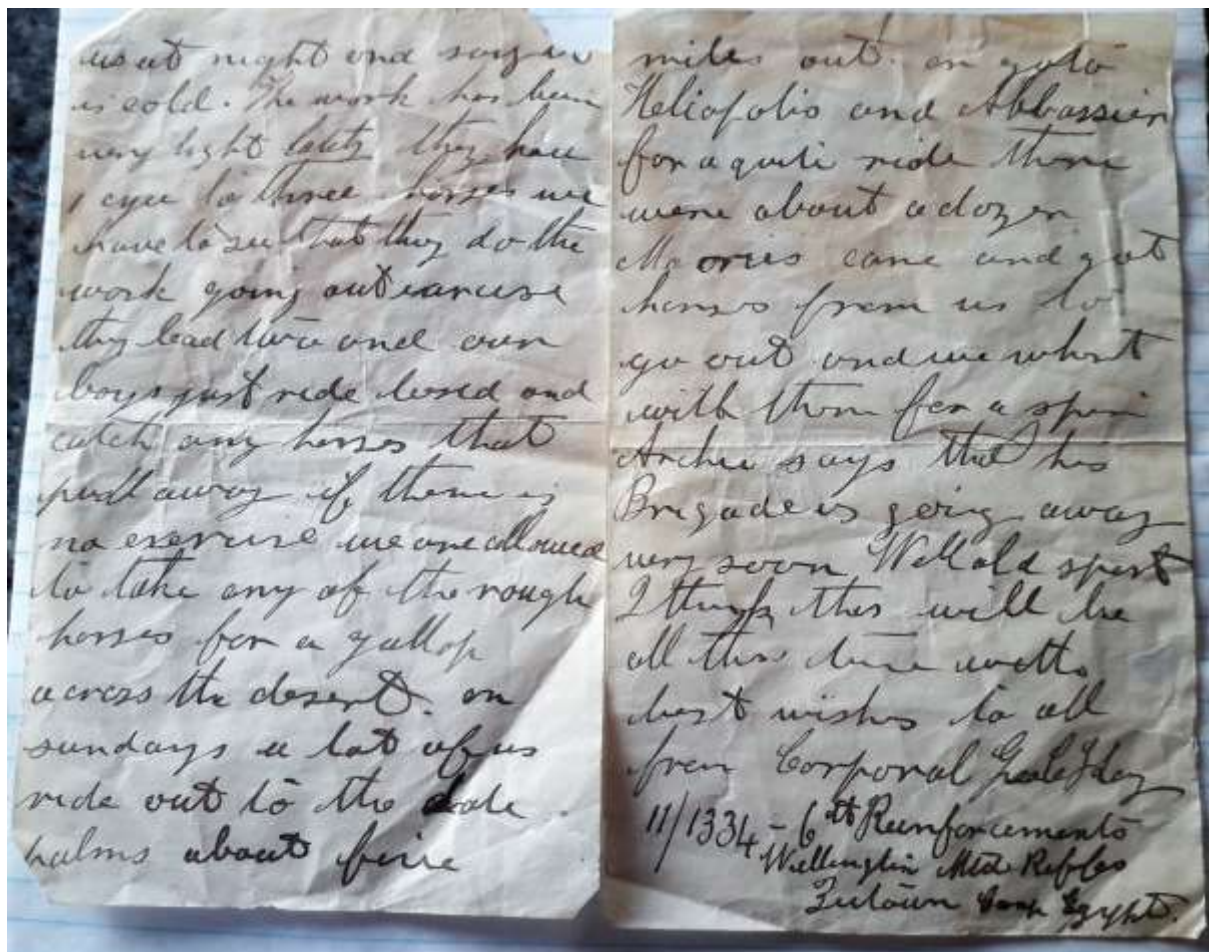 us at night and say
is cold. The work has been
very light lately they have
1 eye to three horses we
have to see that they do the
work going out exercise
they lead two and our
boys just ride and
catch any horses that
pull away if there is
no exercise we are allowed
to take any of the rough
horses for a gallop
across the desert. on
sundays a lot of us
ride out to the date
palms about five
miles out. on goto
Heliopolis and Abbassier
for a quite ride there
were about a dozen
Maories came and got
horses from us to
go out and we
with them for a spin
Archie says that his
Brigade is going away
very soon Well old sport
I think this will be
all this time with
best wishes to all
from Corporal
11/1334 - 6th Reinforcements
Wellington Mtd Rifles
Zeitoun Camp Egypt.